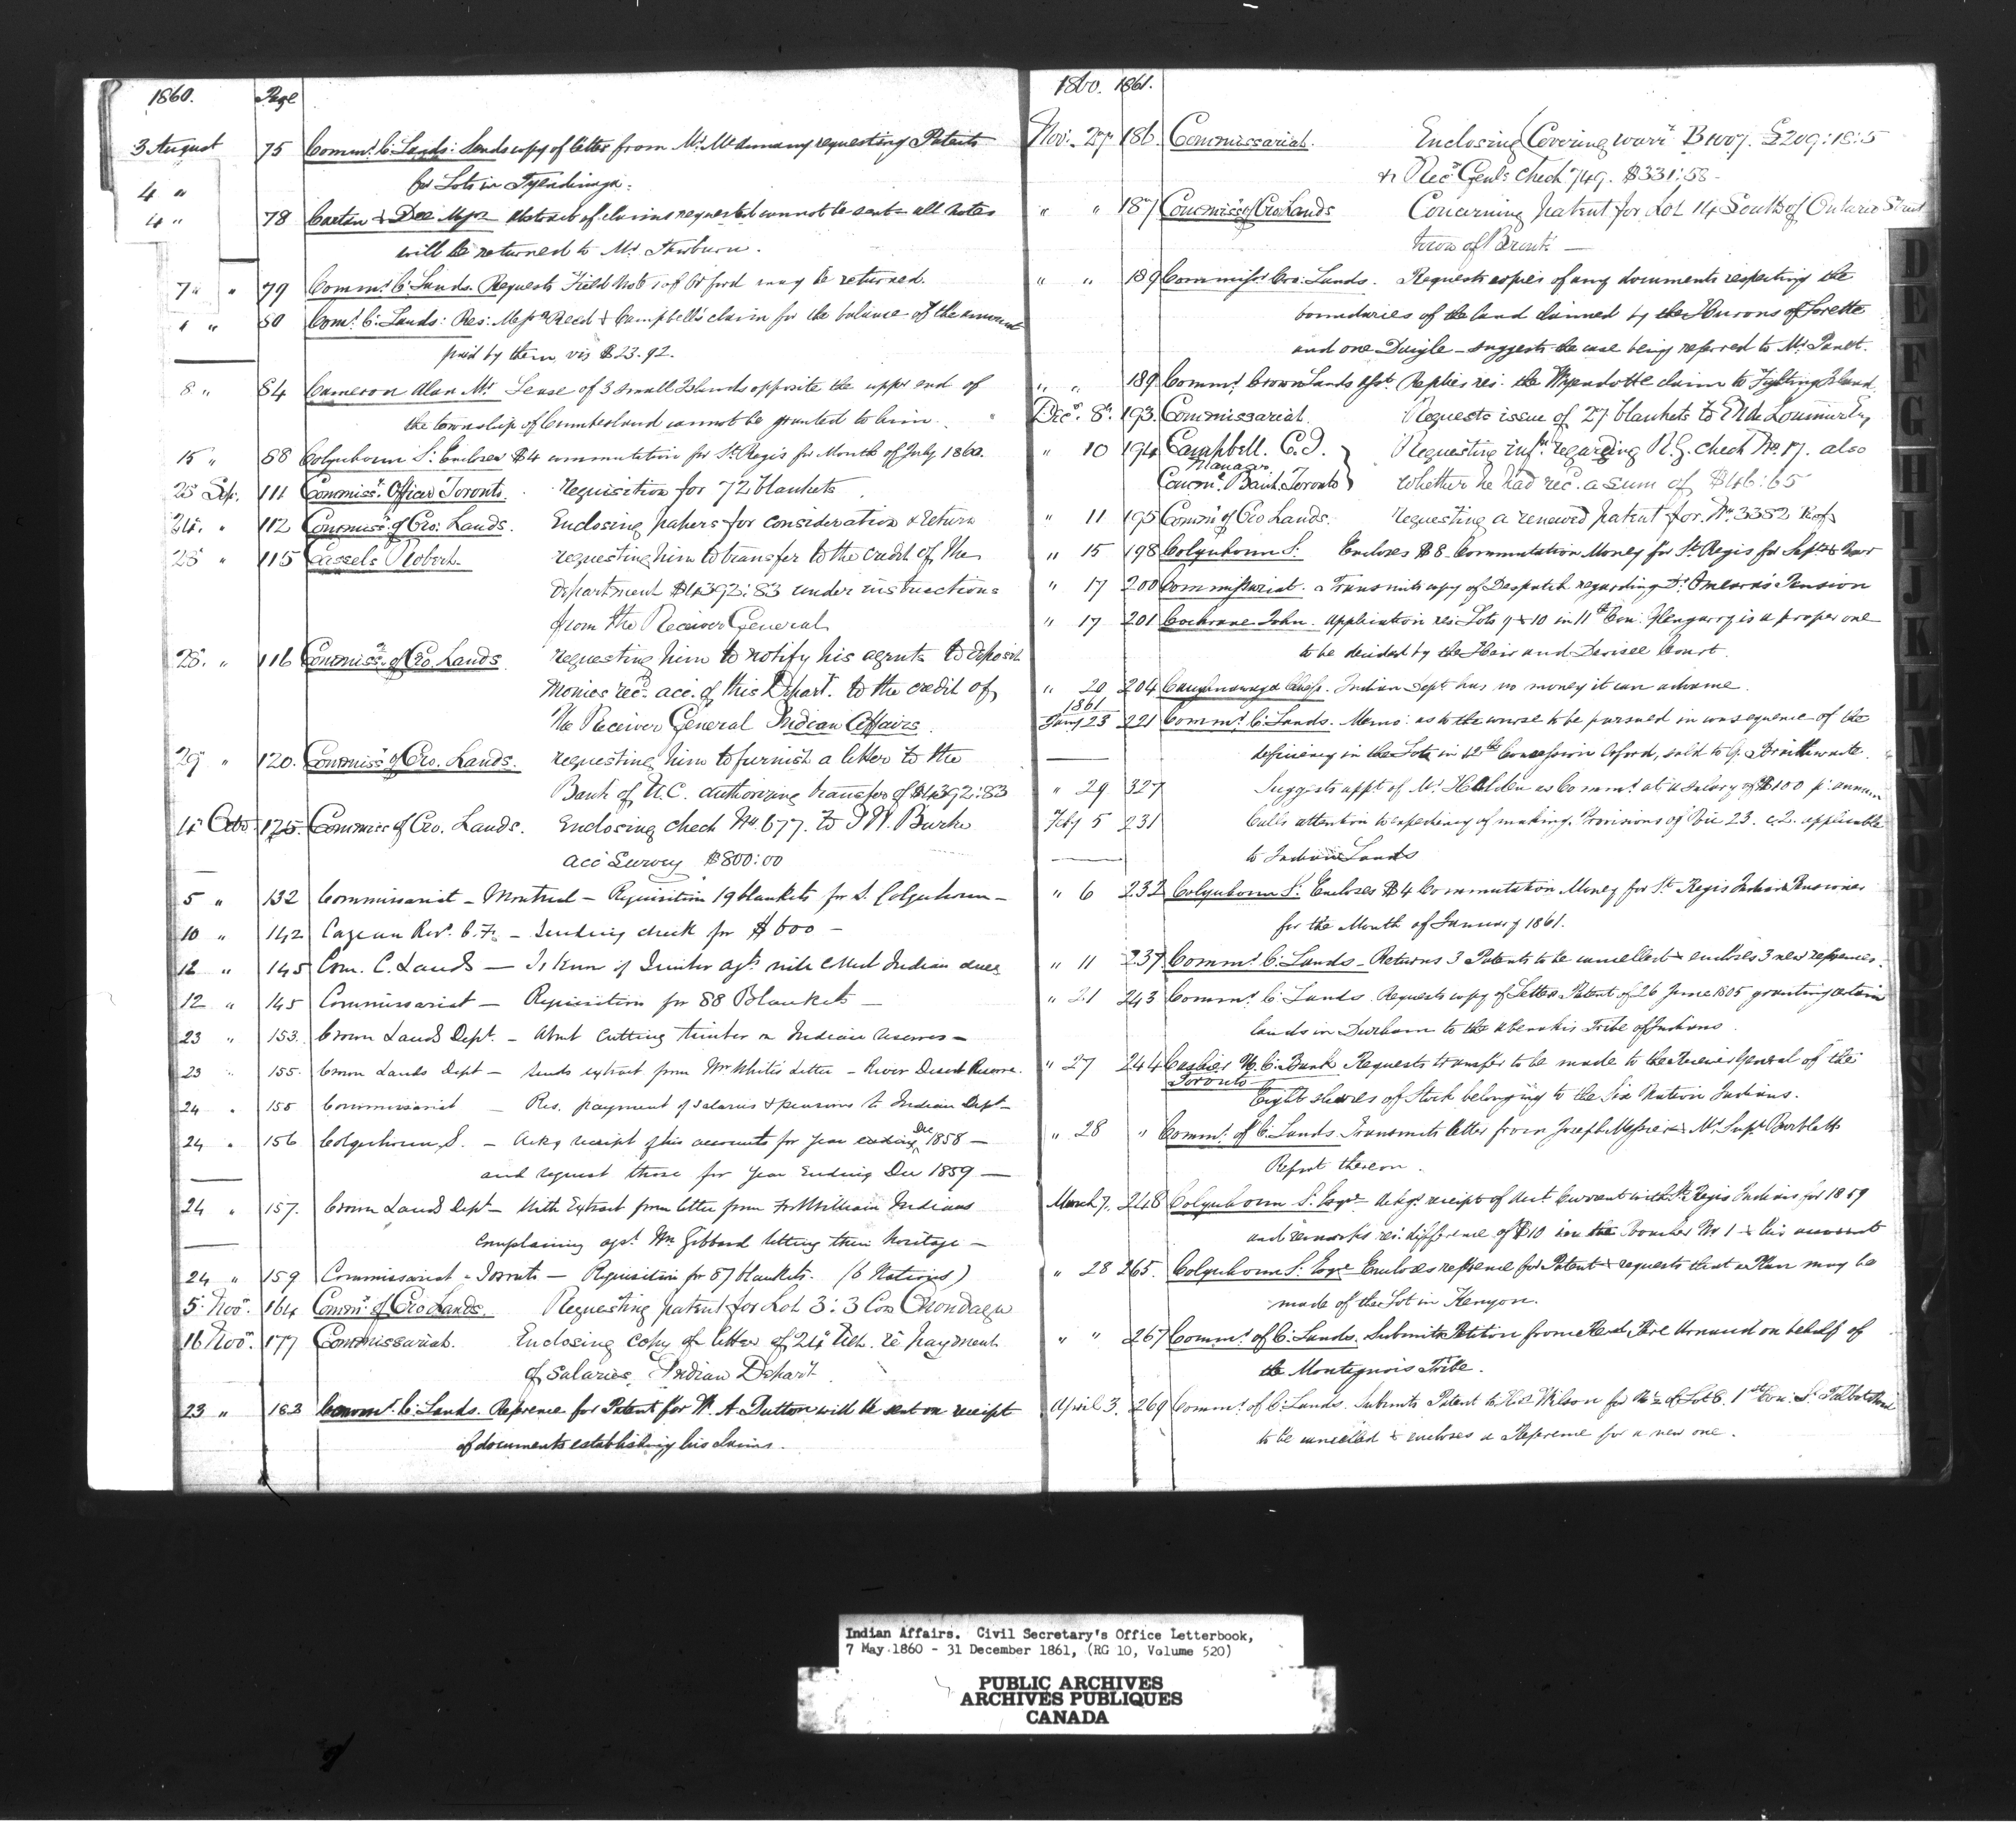 1860. Page
3 August 75 Commr. C. Lands: Sends copy of letter from Mr. requesting Patents
for Lots in Tyendinaga.
4 "
4 " 78 & Dee Majr abstract of claims requested cannot be sent all notes
will be returned to Mr Thorburn.
7 " " 79 Commr. C. Lands. Requests Field Notes of Orford may be returned.
" 80 Comr. C. Lands: Res: Messrs Reed & Campbell's claim for the balance of the amount
paid by them, viz $23.92.
8 " 84 Cameron Alan Mr Lease of 3 small Islands opposite the upper end of
the township of Cumberland cannot be granted to him.
15 " 88 Colquhoun S. Encloses $4 commutation for St. Regis for Month of July 1860.
25 Sep. 111 Commisst. Officer Toronto. requisition for 72 blankets
24. " 112 Commissr. of Cro: Lands. Enclosing papers for consideration & return
25 " 115 Cassels Robert requesting him to transfer to the credit of the
department $4392:83 under instructions
from the Receiver General
28. " 116 Commissr. of Cro. Lands requesting him to notify his agents to deposit
monies recd. acc. of this Depart. to the credit of
the Receiver General Indian Affairs.
29 " 120. Commissr of Cro. Lands. requesting him to furnish a letter to the
Bank of U.C. authorizing transfer of $4392:83
4 Octo. 125. Commiss of Cro. Lands. Enclosing check No 677. to J W. Burke
acc Survey $800:00
5 " 132 Commissariat - Montreal - Requisition 19 blankets for S. Colquhoun -
10 " 142 Cazeau Revd. C. F. - Sending check for $600 -
12 " 145 Com. C. Lands - Is Kerr of Simcoe agt. will collect Indian dues
12 " 145 Commissariat - Requisition for 88 Blankets -
23 " 153. Crown Lands Dept. - About cutting timber on Indian reserves -
23 " 155. Crown Lands Dept - Sends extract from Mr White's Letter - River Desert Reserve.
24 " 155 Commissariat - Res. payment of salaries & pensions to Indian Dept -
24 " 156 Colquhoun, S. - Ackg receipt of his accounts for year ending Dec 1858 -
and request those for year ending Dec 1859 -
24 " 157. Crown Lands Dept - With Extract from letter from Fort William Indians
complaining agst. Mr Gibbard letting their heritage -
24 " 159 Commissariat - Toronto - Requisition for 87 blankets. (6 Nations)
5 Novr. 164 Commr. of Cro Lands. Requesting patent for Lot 3: 3 Con Onondaga
16 Novr. 177 Commissariat. Enclosing copy of letter of 24 re payment
of Salaries Indian Depart
23 " 182 Commr. C. Lands. Reference for Patent for W. A. Dutton will be sent on receipt
of documents establishing his claims.
1860. 1861.
Nov. 27 186 Commissariat. Enclosing Covering warrt B1007. £209:18:5
& Recr Genls check 749. $331:58
" " 187 Commissr of Cro Lands Concerning patent for Lot 14 South of Ontario Street
town of Brant -
" " 189 Commissr Cro: Lands. Requests copies of any documents respecting the
boundaries of the land claimed by the Hurons of Lorette
and one - suggests the case being referred to Mr. Panet.
" " 189 Commr. Crown Lands Replies res: the Wyandotte claim to Fighting Island
Decr. 8th. 193. Commissariat. Requests issue of 27 blankets to
" 10 194 Campbell. C.J. Requesting infn. regarding R.G. check No. 17. also
Manager
Comml. Bank, Toronto whether he had rec. a sum of $46:65
" 11 195 Commr of Cro Lands. requesting a renewed patent for No. 3382
" 15 198 Colquhoun S: Encloses $8 Commutation Money for St. Regis for Septr & Novr
" 17 200 Commissariat. Transmits copy of Despatch regarding Dr. Pension
" 17 201 Cochrane John. Application res: Lots 9 & 10 in 11th Con: Glengarry is a proper one
to be decided by the Heir and Devisee Court.
" 20 204 Caughnawaga Chiefs. Indian Dept has no money it can advance.
1861
Jany 23 221 Commr. C. Lands. Memo: as to the course to be pursued in consequence of the
deficiency in the Lots in 12th Concession Orford, sold to G. Braithwaite.
" 29 327 Suggests appt. of Mr. Holden as Commr. at a salary of $100 p: annum
Feby 5 231 Calls attention to expediency of making Provisions of Vic 23. c. 2. applicable
to Indian Lands
" 6 232 Colquhoun S: Encloses $4 Commutation Money for St. Regis Indian Pensioner
for the Month of January 1861.
" 11 237 Commr. C. Lands - Returns 3 Patents to be cancelled & encloses 3 new references.
" 21 243 Commr. C. Lands Requests copy of Letters Patent of 26 June 1805 granting certain
lands in Durham to the Abenakis Tribe of Indians.
" 27 244 Cashier U. C. Bank Requests transfer to be made to the Receiver General of the
Toronto
Eight shares of Stock belonging to the Six Nation Indians.
" 28 " Commr. of C. Lands Transmits letter from Joseph Messier & Mr. Supt Bartlett's
Report thereon.
March 7. 248 Colquhoun S. Esqre. Ackgs. receipt of Acct. Current with St. Regis Indians for 1859
and remarks res: difference of $10 in the Voucher No 1 & this account
" 28 265. Colquhoun S. Esqre Encloses reference for Patent & requests that a Plan may be
made of the Lot in Kenyon.
" " 267 Commr. of C. Lands. Submits Petition from Revd. Père Arnaud on behalf of
the Montagnois Tribe.
April 3. 269 Commr. of C. Lands. Submits Patent to Wilson for N ½ of Lot 6. 1st Con: S. Talbot Road
to be cancelled & encloses a Reference for a new one.
D
E
F
G
H
I
J
K
L
M
N
O
P
Q
S
Indian Affairs. Civil Secretary's Office Letterbook,
7 May 1860 - 31 December 1861, (RG 10, Volume 520)
PUBLIC ARCHIVES
ARCHIVES PUBLIQUES
CANADA